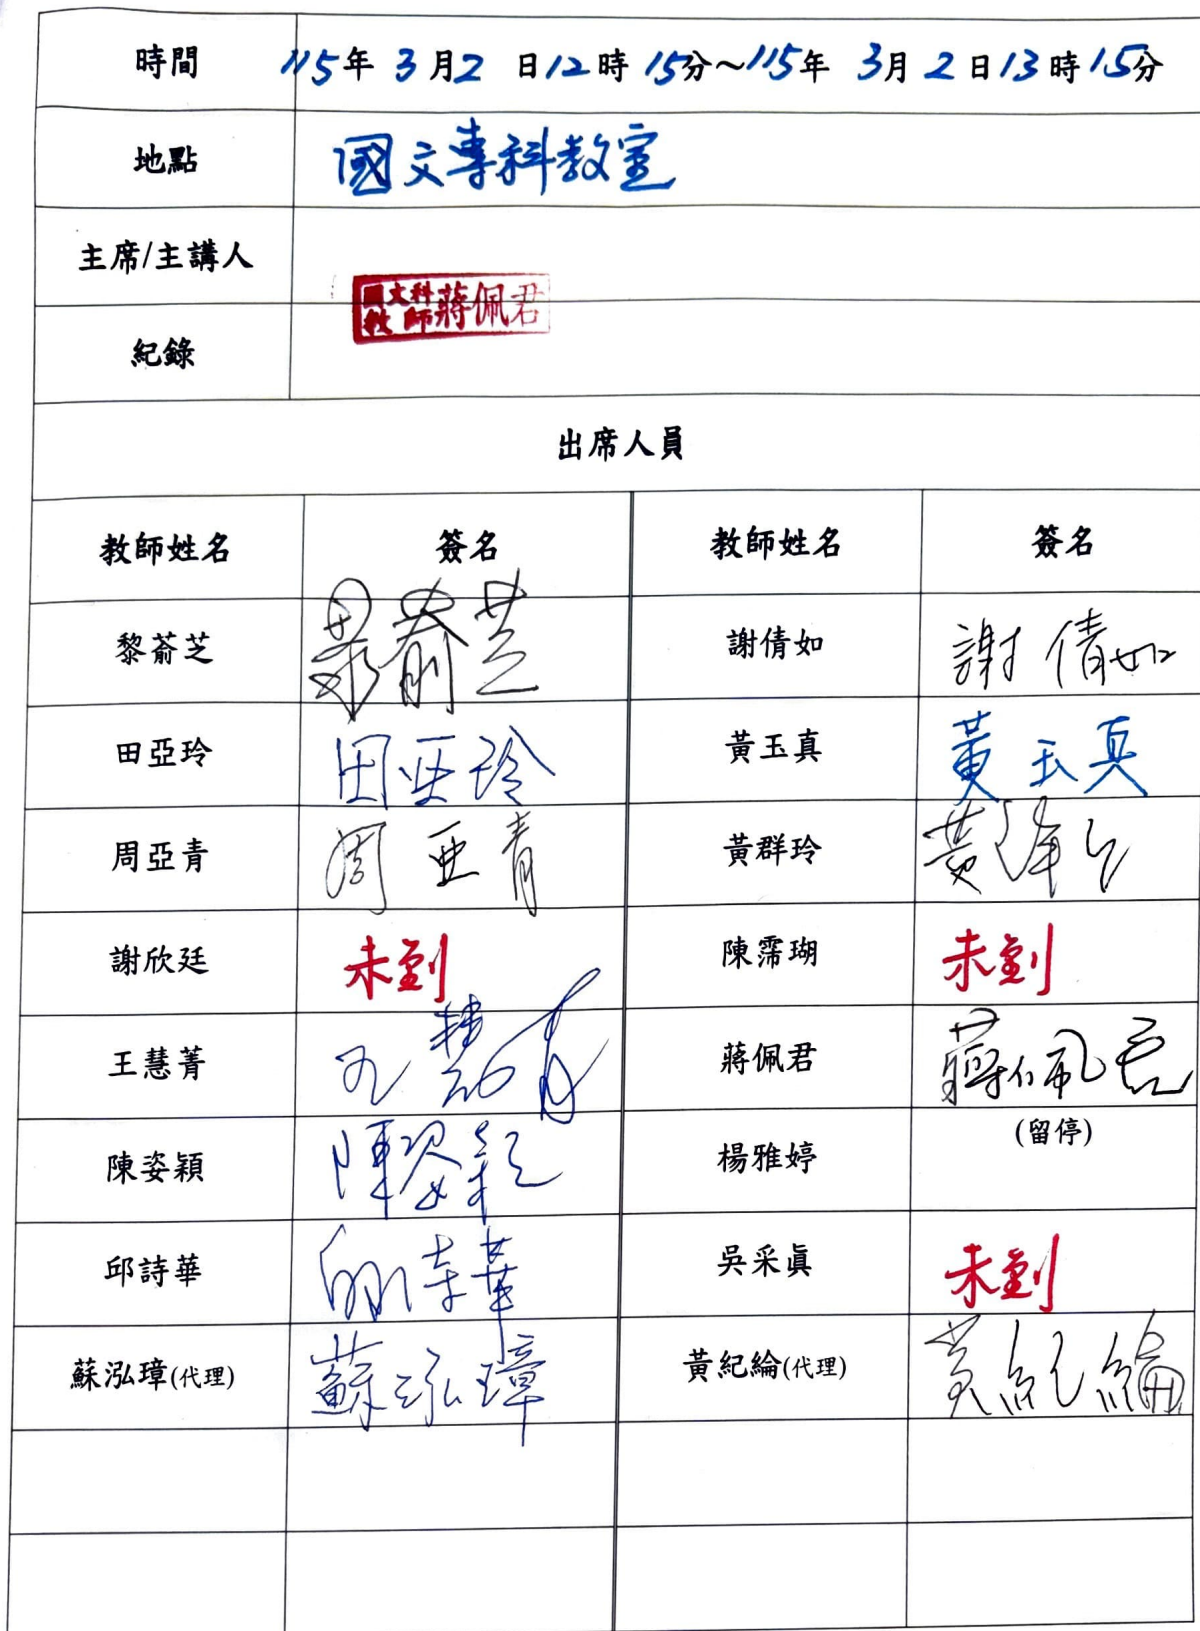 時間 115年 3月2 日12時 15分～115年 3月 2日13時15分
地點 國文專科教室
主席/主講人
國文科
教師 蔣佩君
紀錄
出席人員
教師姓名 簽名 教師姓名 簽名
黎萮芝 黎萮芝 謝倩如 謝倩如
田亞玲 田亞玲 黃玉真 黃玉真
周亞青 周亞青 黃群玲 黃群玲
謝欣廷 未到 陳霈瑚 未到
王慧菁 王慧菁 蔣佩君 蔣佩君
陳姿穎 陳姿穎 楊雅婷 (留停)
邱詩華 邱詩華 吳采眞 未到
蘇泓璋(代理) 蘇泓璋 黃紀綸(代理) 黃紀綸